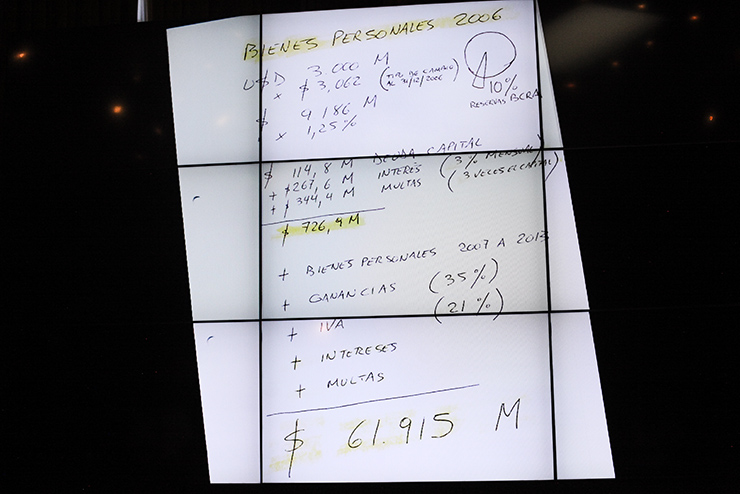 BIENES PERSONALES 2006
USD 3.000 M
x $ 3,062 (TIPO DE CAMBIO AL 31/12/2006)
10%
RESERVAS BCRA
$ 9186 M
x 1,25%
$ 114,8 M DEUDA CAPITAL
+ $267,6 M INTERÉS (3% MENSUAL)
+ $ 344,4 M MULTAS (3 VECES EL CAPITAL)
$ 726,4 M
+ BIENES PERSONALES 2007 A 2013
+ GANANCIAS (35%)
+ IVA (21%)
+ INTERESES
+ MULTAS
$ 61.915 M